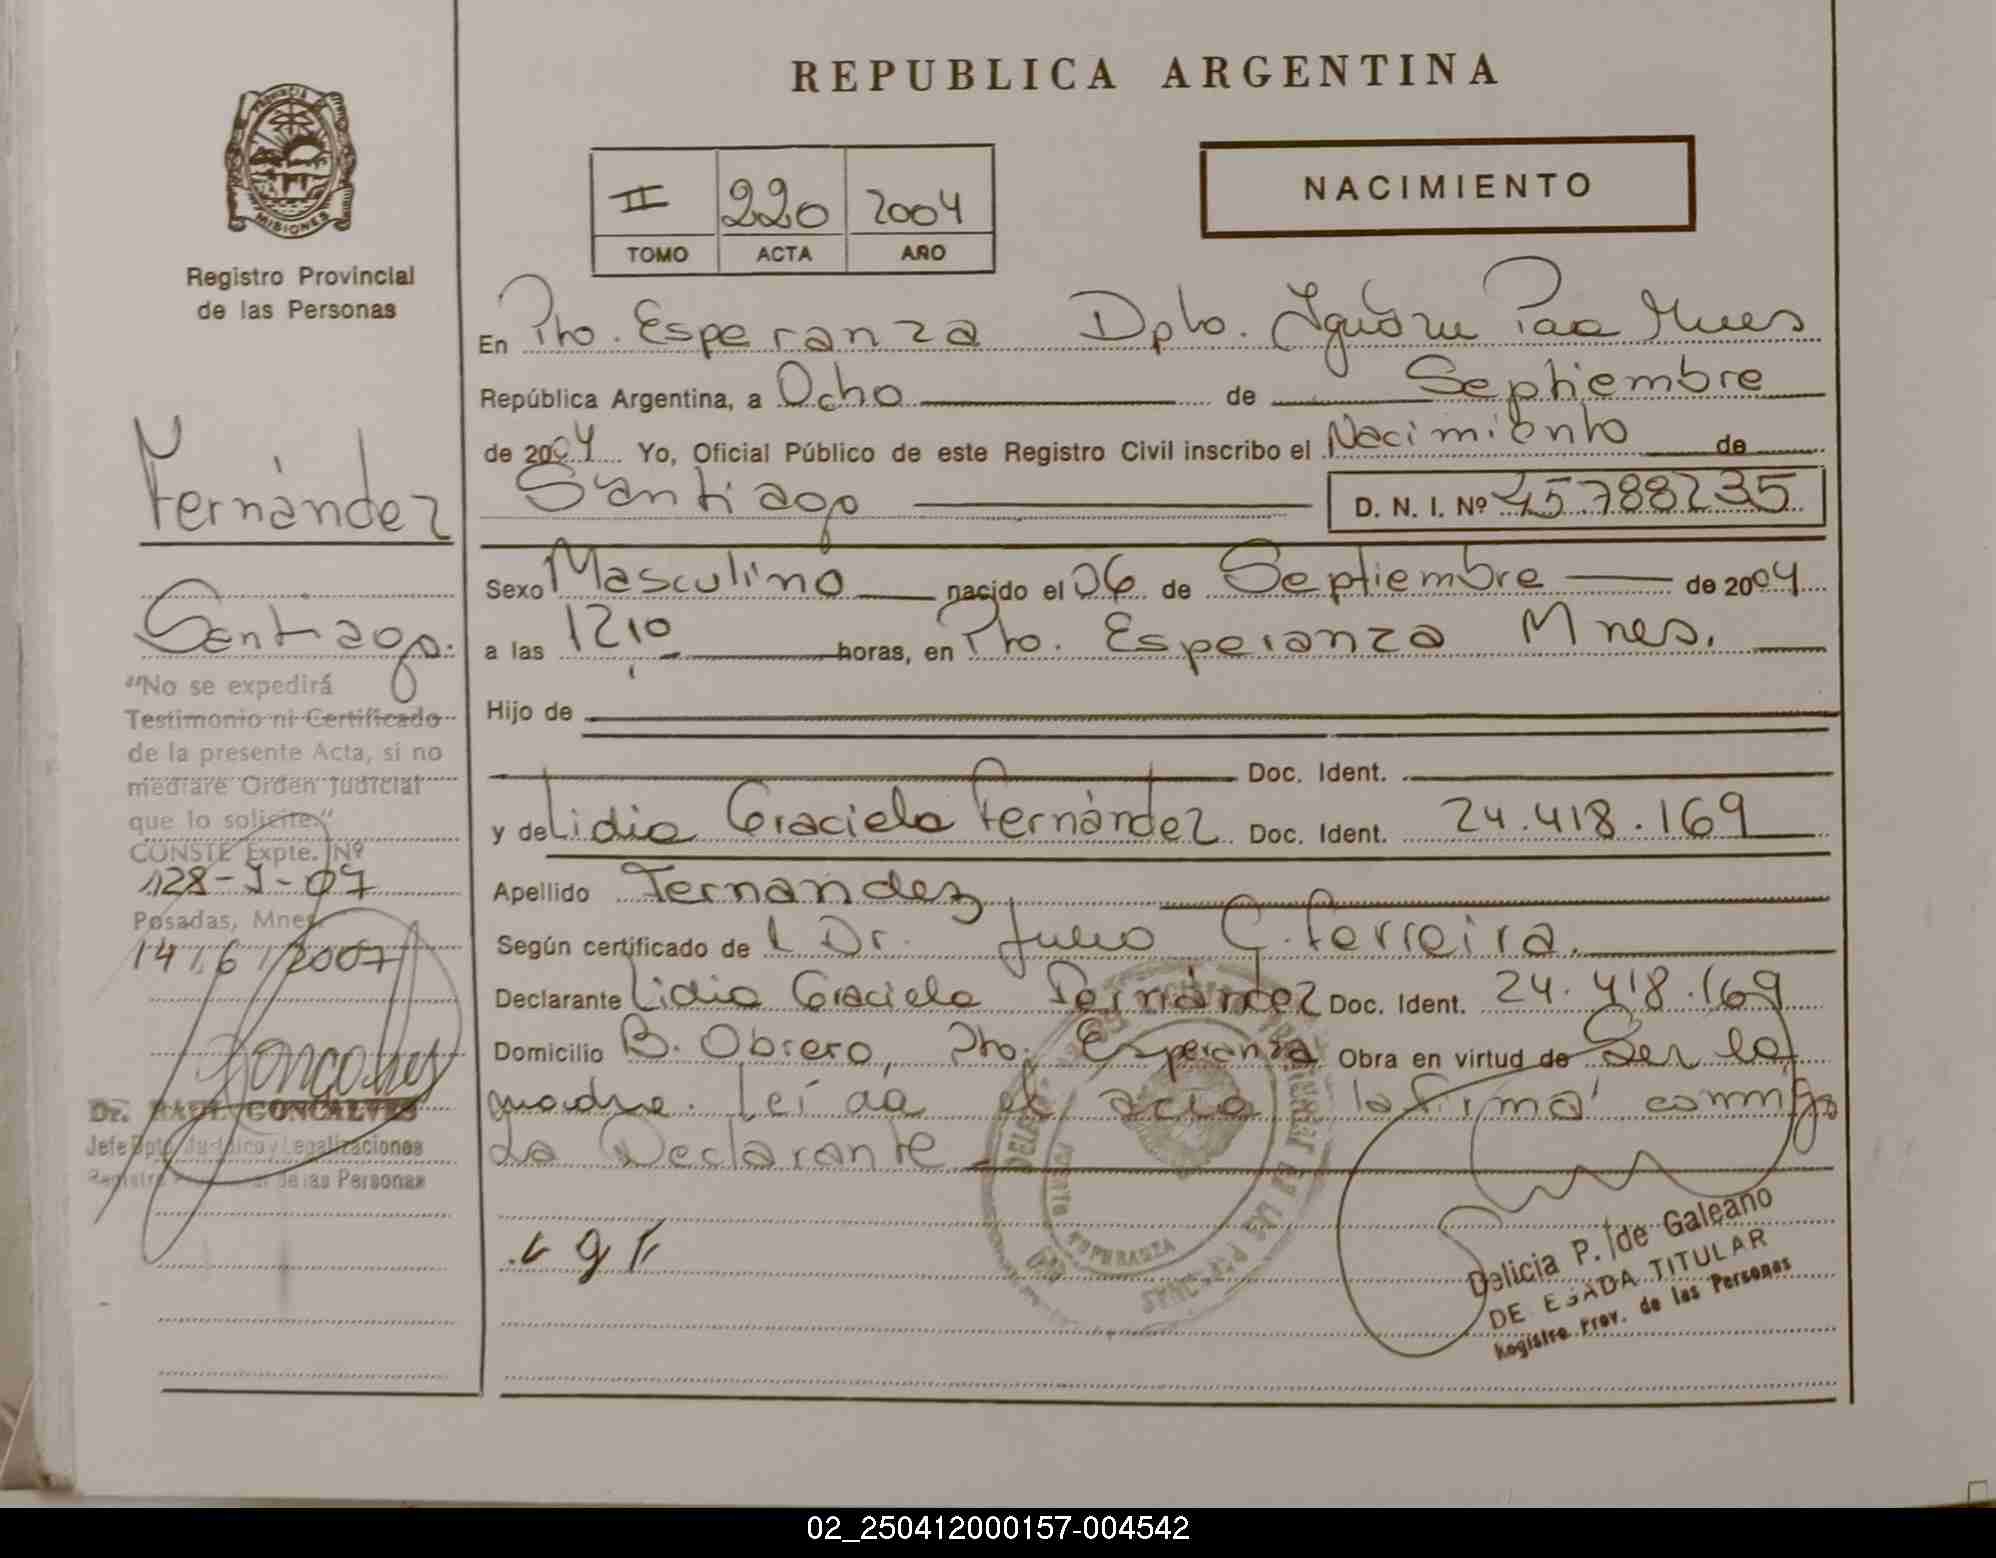 REPUBLICA ARGENTINA
PROVINCIA DE
MISIONES
Registro Provincial
de las Personas
NACIMIENTO
II 220 2004
TOMO ACTA AÑO
En Pto. Esperanza Dpto. Iguazu Pcia Mnes
República Argentina, a Ocho de Septiembre
de 2004 Yo, Oficial Público de este Registro Civil inscribo el Nacimiento de
Santiago D. N. I. Nº 45.788235
Sexo Masculino nacido el 06 de Septiembre de 2004
a las 12,10 horas, en Pto. Esperanza Mnes.
Hijo de
Doc. Ident.
y de Lidia Graciela Fernández Doc. Ident. 24.418.169
Apellido Fernandez
Según certificado de l Dr. Julio G. Ferreira.
Declarante Lidia Graciela Fernández Doc. Ident. 24.418.169
Domicilio B. Obrero, Pto. Esperanza Obra en virtud de Ser la
madre. Leí da el acta la firma conmigo
La Declarante
L g F
Delicia P. de Galeano
DELEGADA TITULAR
Registro Prov. de las Personas
Fernández
Santiago.
"No se expedirá
Testimonio ni Certificado
de la presente Acta, si no
mediare Orden Judicial
que lo solicite."
CONSTE Expte. Nº
128-J-07
Posadas, Mnes.
14/6/2007
Dr. RAUL GONCALVES
Jefe Dpto. Jurídico y Legalizaciones
Registro Provincial de las Personas
PROVINCIAL DE LAS PERSONAS
PUERTO ESPERANZA
02_250412000157-004542